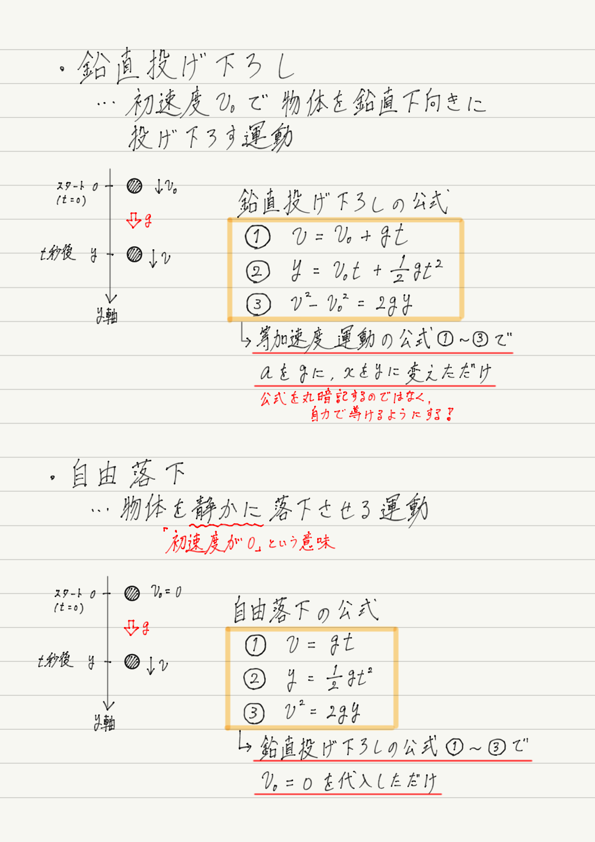 ・鉛直投げ下ろし
… 初速度v₀で物体を鉛直下向きに
投げ下ろす運動
スタート 0 ↓v₀
(t=0)
g
t秒後 y ↓v
y軸
鉛直投げ下ろしの公式
① v = v₀ + gt
② y = v₀t + 1/2 gt²
③ v² - v₀² = 2gy
↳ 等加速度運動の公式①～③で
aをgに、xをyに変えただけ
公式を丸暗記するのではなく、
自力で導けるようにする!
・自由落下
… 物体を静かに落下させる運動
「初速度が0」という意味
スタート 0 v₀=0
(t=0)
g
t秒後 y ↓v
y軸
自由落下の公式
① v = gt
② y = 1/2 gt²
③ v² = 2gy
↳ 鉛直投げ下ろしの公式①～③で
v₀=0を代入しただけ